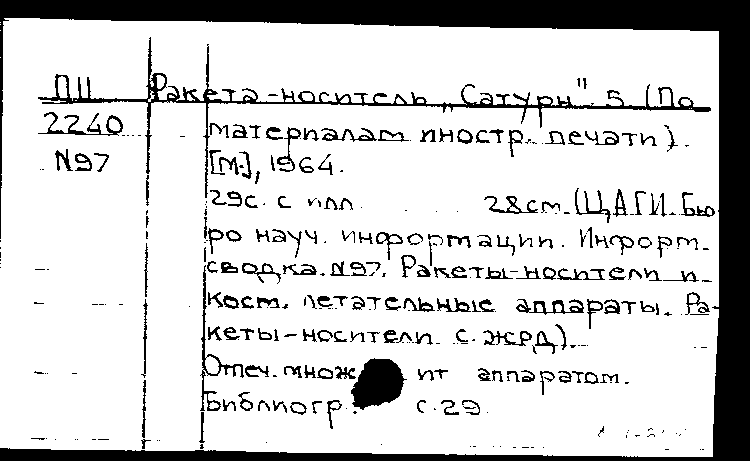 ПШ Ракета-носитель „Сатурн" 5 (По
2240 материалам иностр. печати).
N97 [М.], 1964.
29с. с илл. 28см. (ЦАГИ. Бю-
ро науч. информации. Информ.
сводка. N97. Ракеты-носители и
косм. летательные аппараты. Ра-
кеты-носители с ЖРД).
Отпеч. множ ит аппаратом.
Библиогр.: с.29.